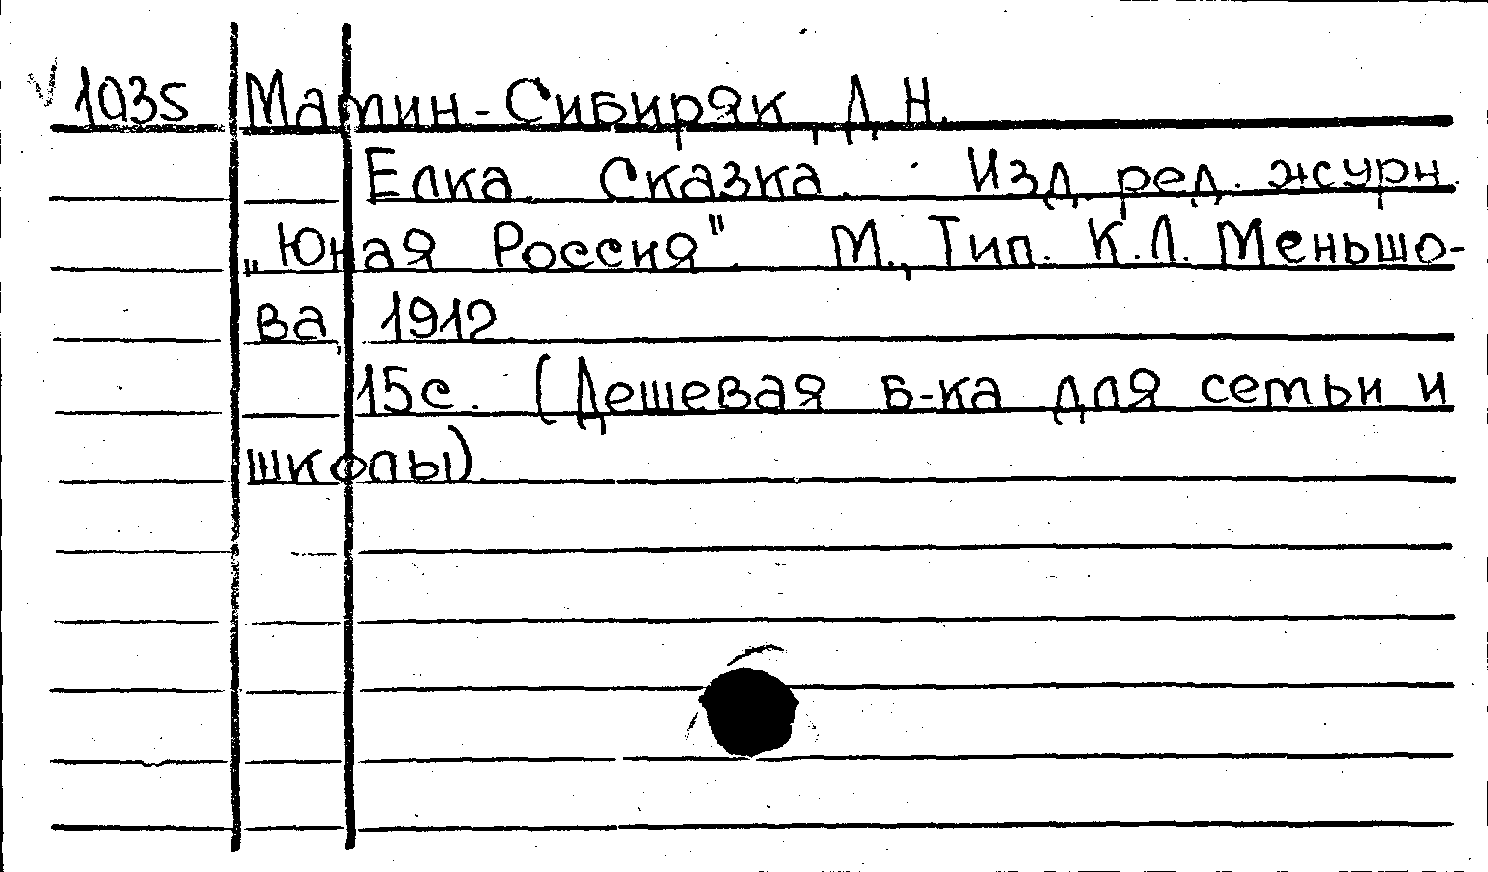 1035 Мамин-Сибиряк, Д.Н.
Елка. Сказка. Изд. ред. журн.
„Юная Россия". М., Тип. К.Л. Меньшо-
ва, 1912
15с. (Дешевая б-ка для семьи и
школы).